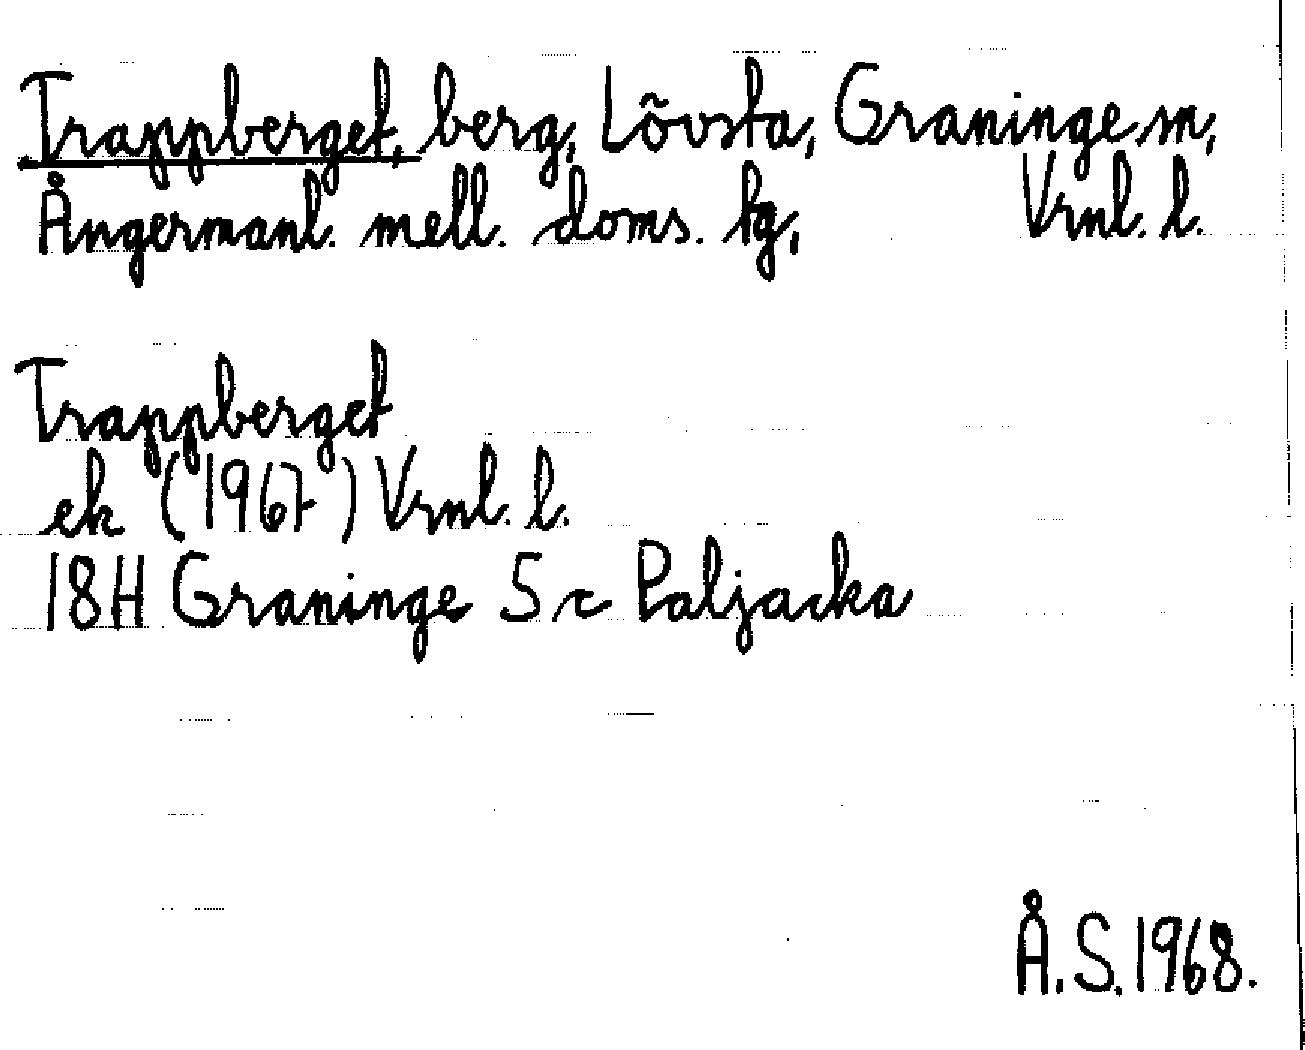 Trappberget, berg, Lövsta, Graninge sn,
Ångermanl. mell. doms. tg, Vrnl. l.
Trappberget
ek (1967) Vrnl. l.
18H Graninge 5 c Paljacka
Å.S. 1968.